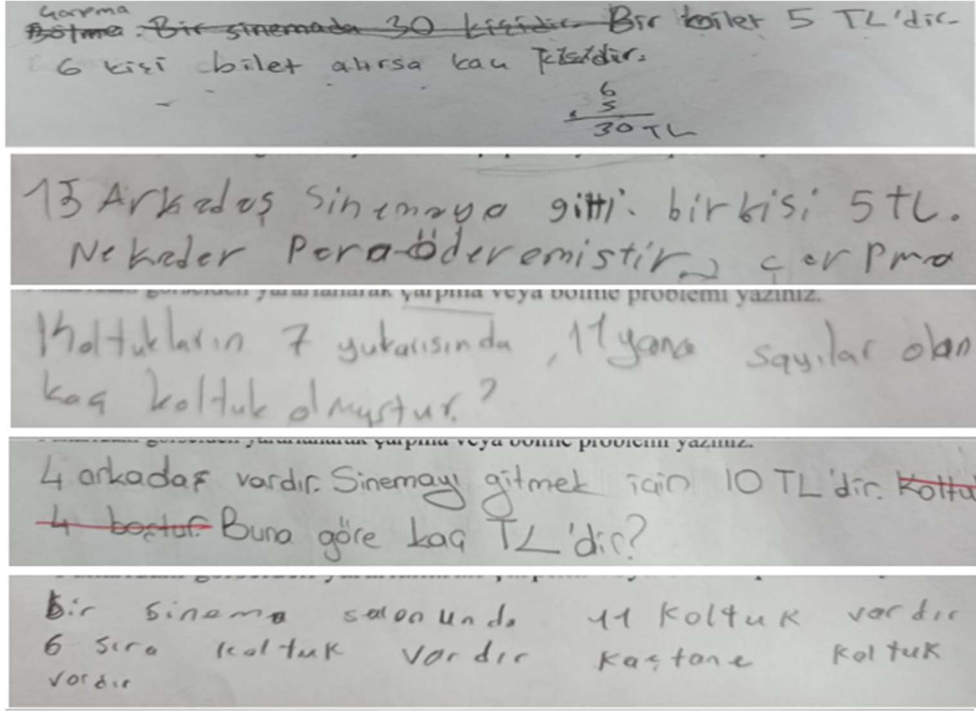 Çarpma
Bölme. Bir sinemada 30 kişidir. Bir bilet 5 TL'dir.
6 kişi bilet alırsa kaç
6
5
30 TL
13 Arkadaş Sinemaya gitti. bir kisi 5 tL.
Ne kader Para öderemistir çarpma
yararlanarak çarpma veya bölme problemi yazınız.
Koltukların 7 yukarısında, 11 yana sayılar olan
kaç koltuk olmuştur?
yararlanarak çarpma veya bölme problemi yazınız.
4 arkadaş vardır. Sinemayı gitmek için 10 TL'dir. Koltu
4 boştur. Buna göre kaç TL'dir?
bir sinema salonunda 11 koltuk vardır
6 sıra koltuk vardır kaçtane koltuk
vardır